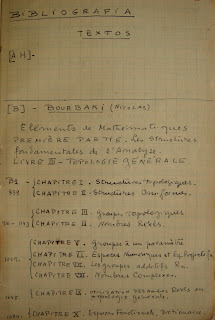 BIBLIOGRAFIA
TEXTOS
[A H]-
[B] - BOURBAKI (NICOLAS)
Eléments de Mathématiques
PREMIÈRE PARTIE. Les Structures
fondamentales de l'Analyse.
LIVRE III - TOPOLOGIE GENERALE
CHAPITRE I. Structures Topologiques.
CHAPITRE II. Structures Uniformes.
CHAPITRE III. groups topologiques
CHAPITRE IV. Nombres Réels.
CHAPITRE V. Groupes à un paramètre
CHAPITRE VI. Espaces Numériques et
CHAPITRE VII. Les groupes additifs
CHAPITRE VIII. Nombres Complexes.
CHAPITRE IX. Nombres Réels en
topologie générale.
CHAPITRE X. Espaces Fonctionnels. Dictionnaire.